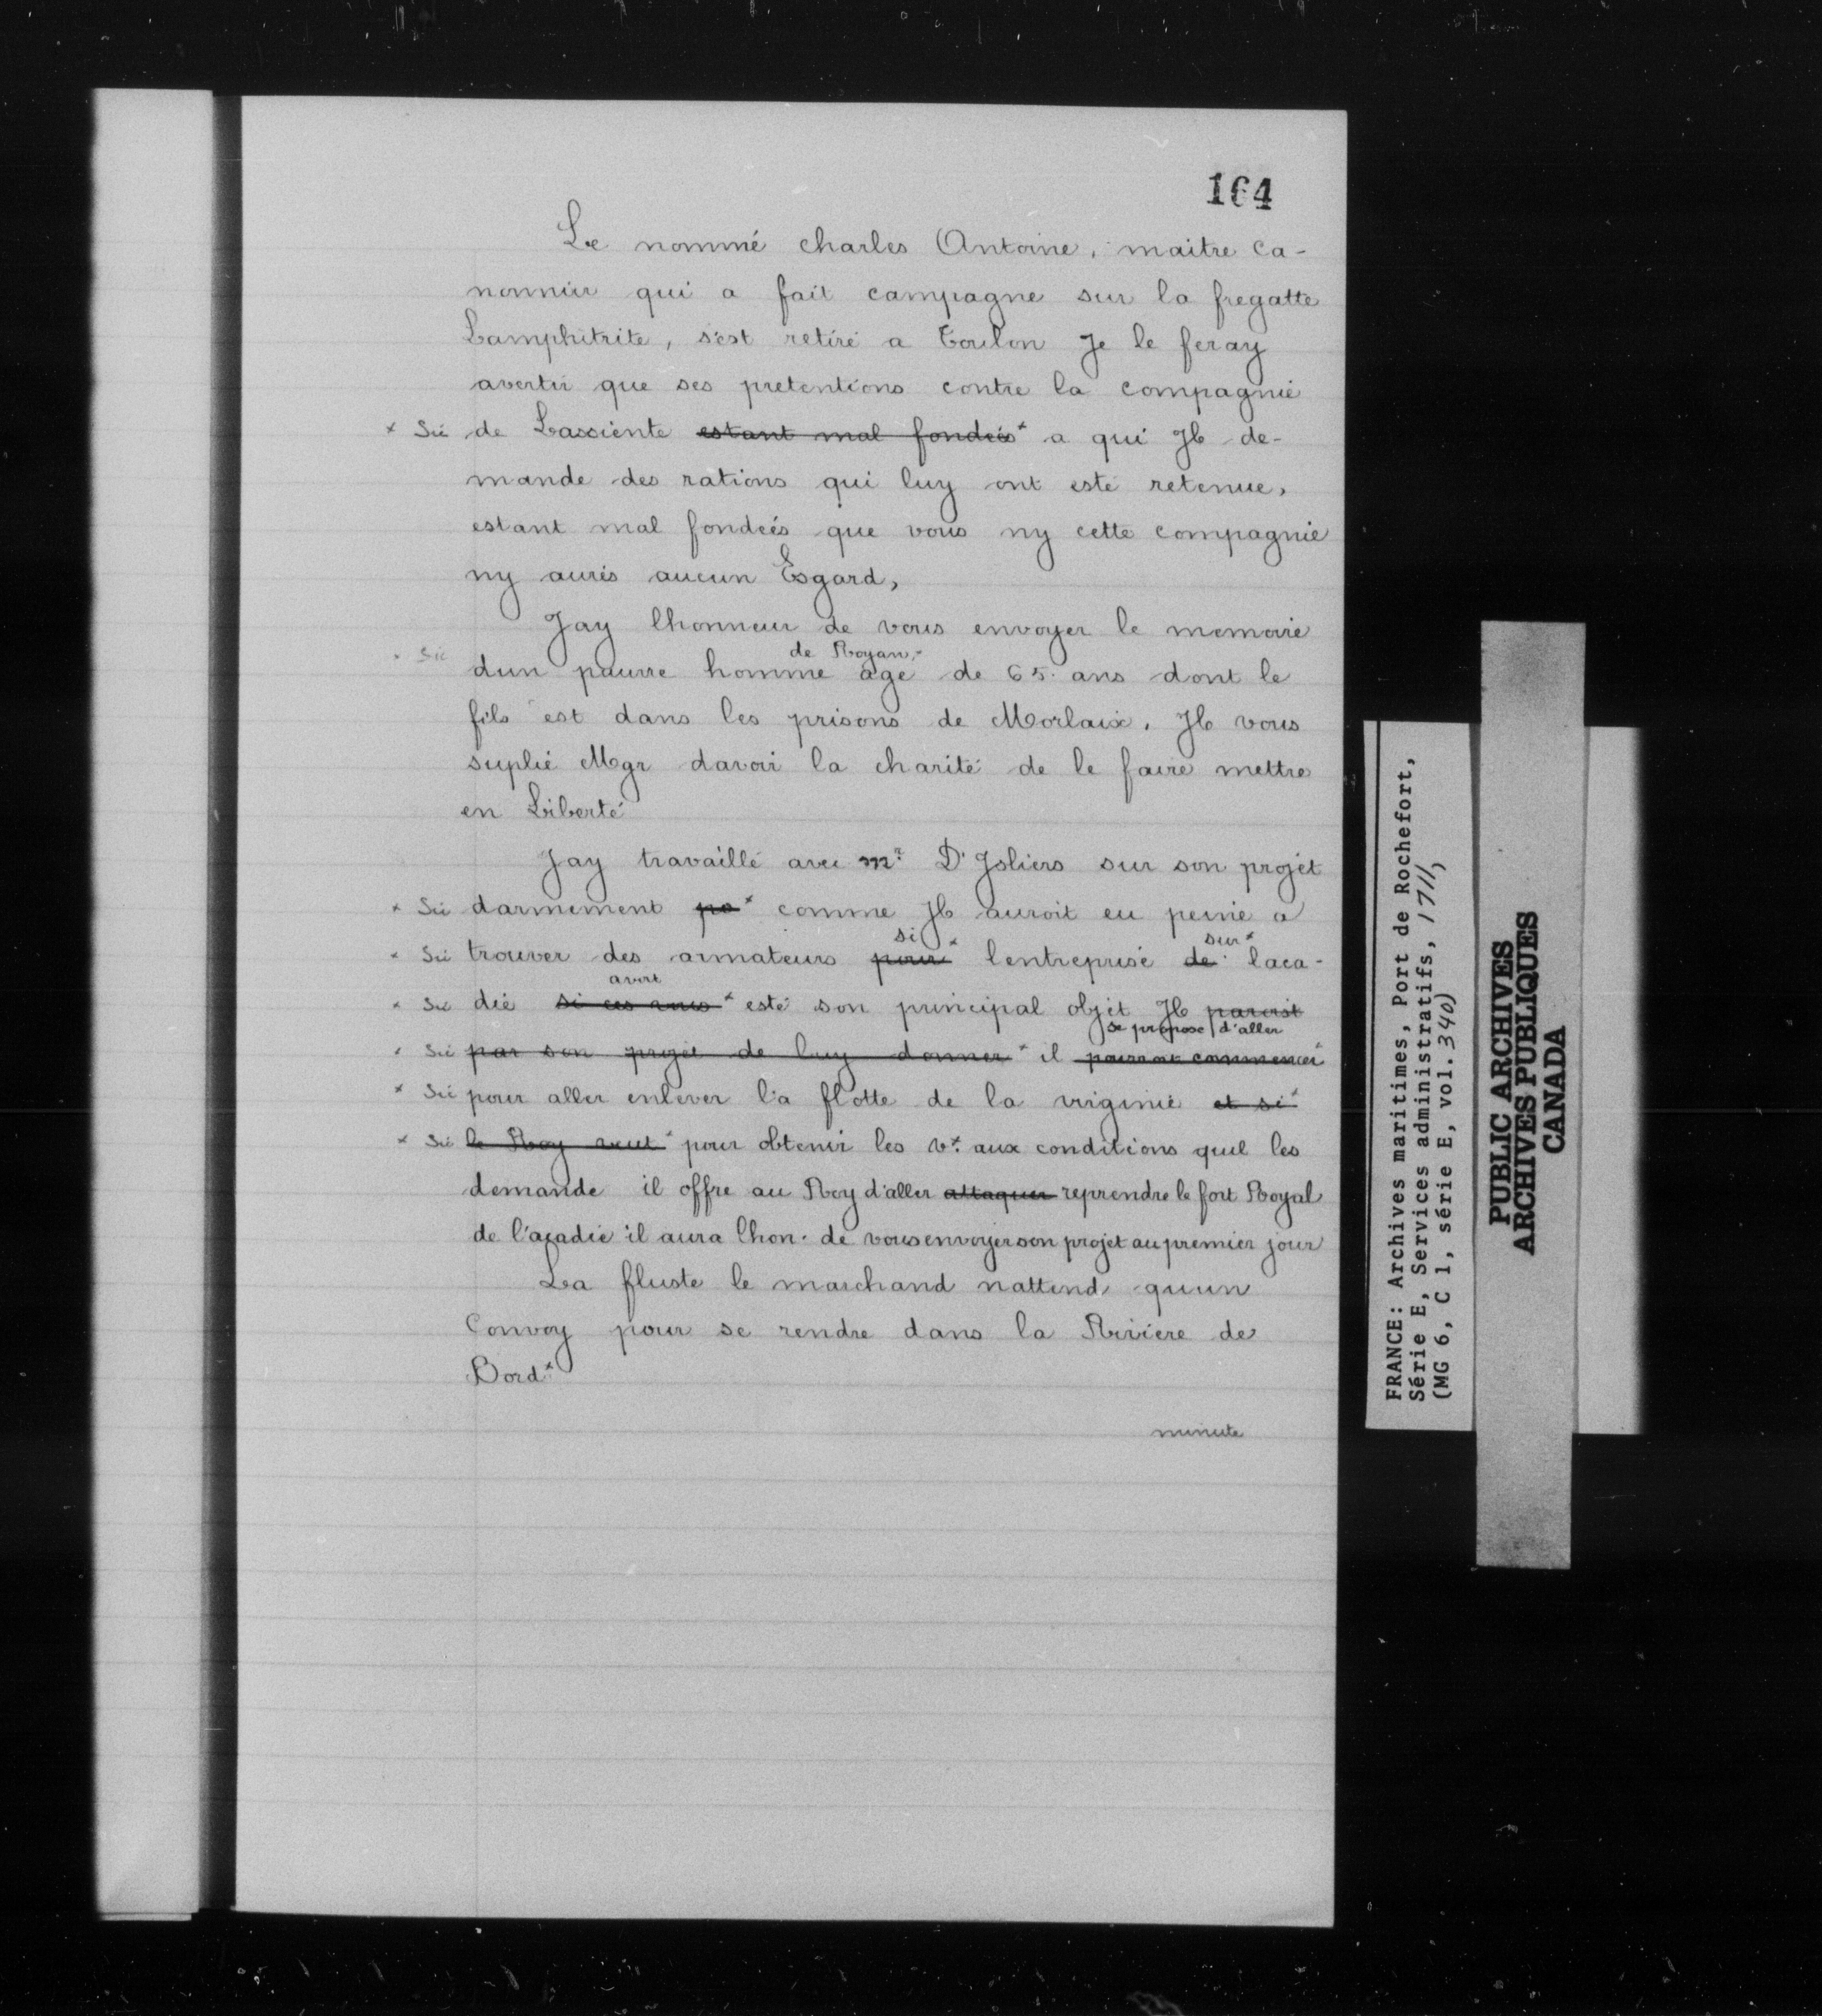 164
Le nommé charles Antoine, maitre ca-
nonnier qui a fait campagne sur la fregatte
Lamphitrite, s'est retiré a Toulon Je le feray
avertir que ses pretentions contre la compagnie
× Sic de Lassiente estant mal fondées × a qui Jl de-
mande des rations qui luy ont esté retenue,
estant mal fondées que vous ny cette compagnie
ny aurés aucun Esgard,
Jay lhonneur de vous envoyer le memoire
de Royan,
× Sic dun pauvre homme âgé de 65. ans dont le
fils est dans les prisons de Morlaix. Jl vous
suplie Mgr davoir la charité de le faire mettre
en Liberté
Jay travaillé avec mr. D'Jsliers sur son projet
× Sic darmement po × comme Jl auroit eu peine a
si sur ×
× Sic trouver des armateurs pour × lentreprise de laca-
avoit
× Sic die si ces × esté son principal objet Jl paroist
se propose d'aller
× Sic par son projet de luy donner × il pourroit commencer
× Sic pour aller enlever la flotte de la virginie et si ×
× Sic le Roy veut × pour obtenir les vx. aux conditions quil les
demande il offre au Roy d'aller attaquer reprendre le fort Royal
de l'acadie il aura lhon. de vous envoyer son projet au premier jour
La fluste le marchand nattend quun
Convoy pour se rendre dans la Riviere de
Bordx
minute
FRANCE: Archives maritimes, Port de Rochefort,
Série E, Services administratifs, 1711,
(MG 6, C 1, série E, vol. 340)
PUBLIC ARCHIVES
ARCHIVES PUBLIQUES
CANADA